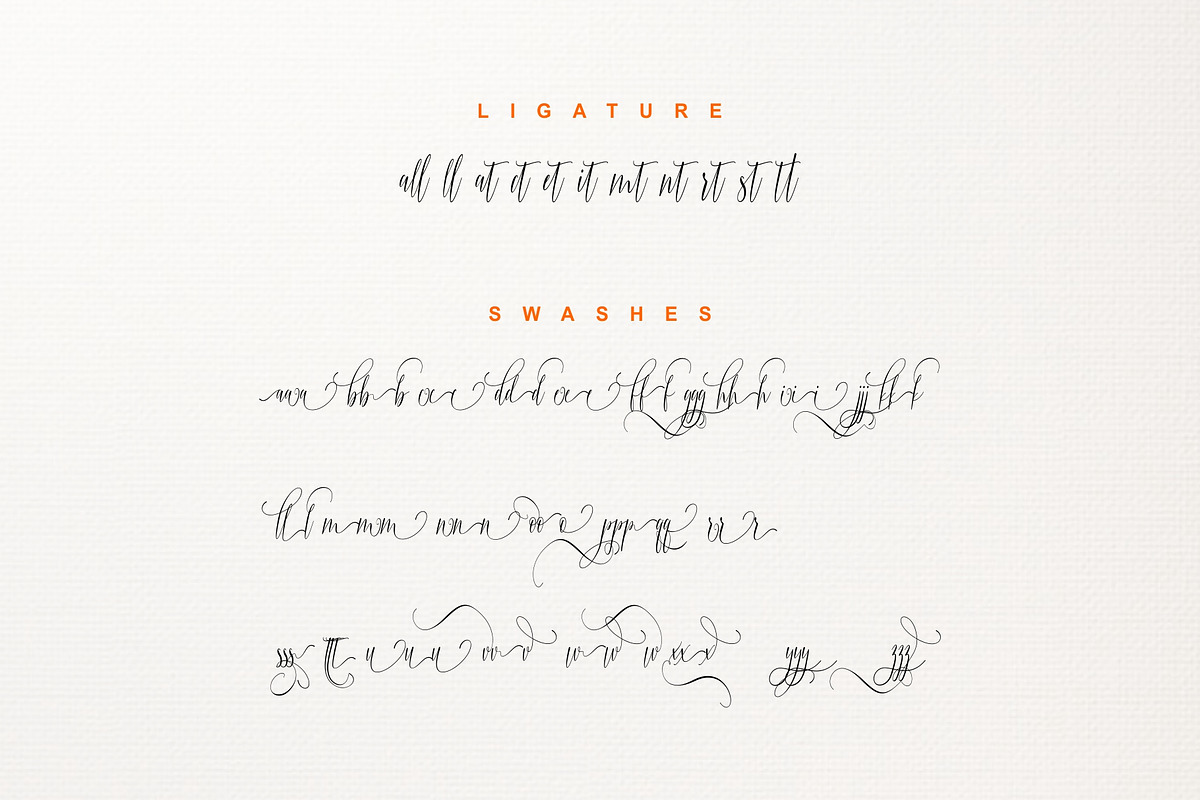 LIGATURE
all ll at ct et it mt nt rt st tt
SWASHES
aaa bbb ccc ddd eee fff ggg hhh iii jjj kkk
lll mmm nnn ooo ppp qqq rrr
sss ttt uuu vvv www xxx yyy zzz